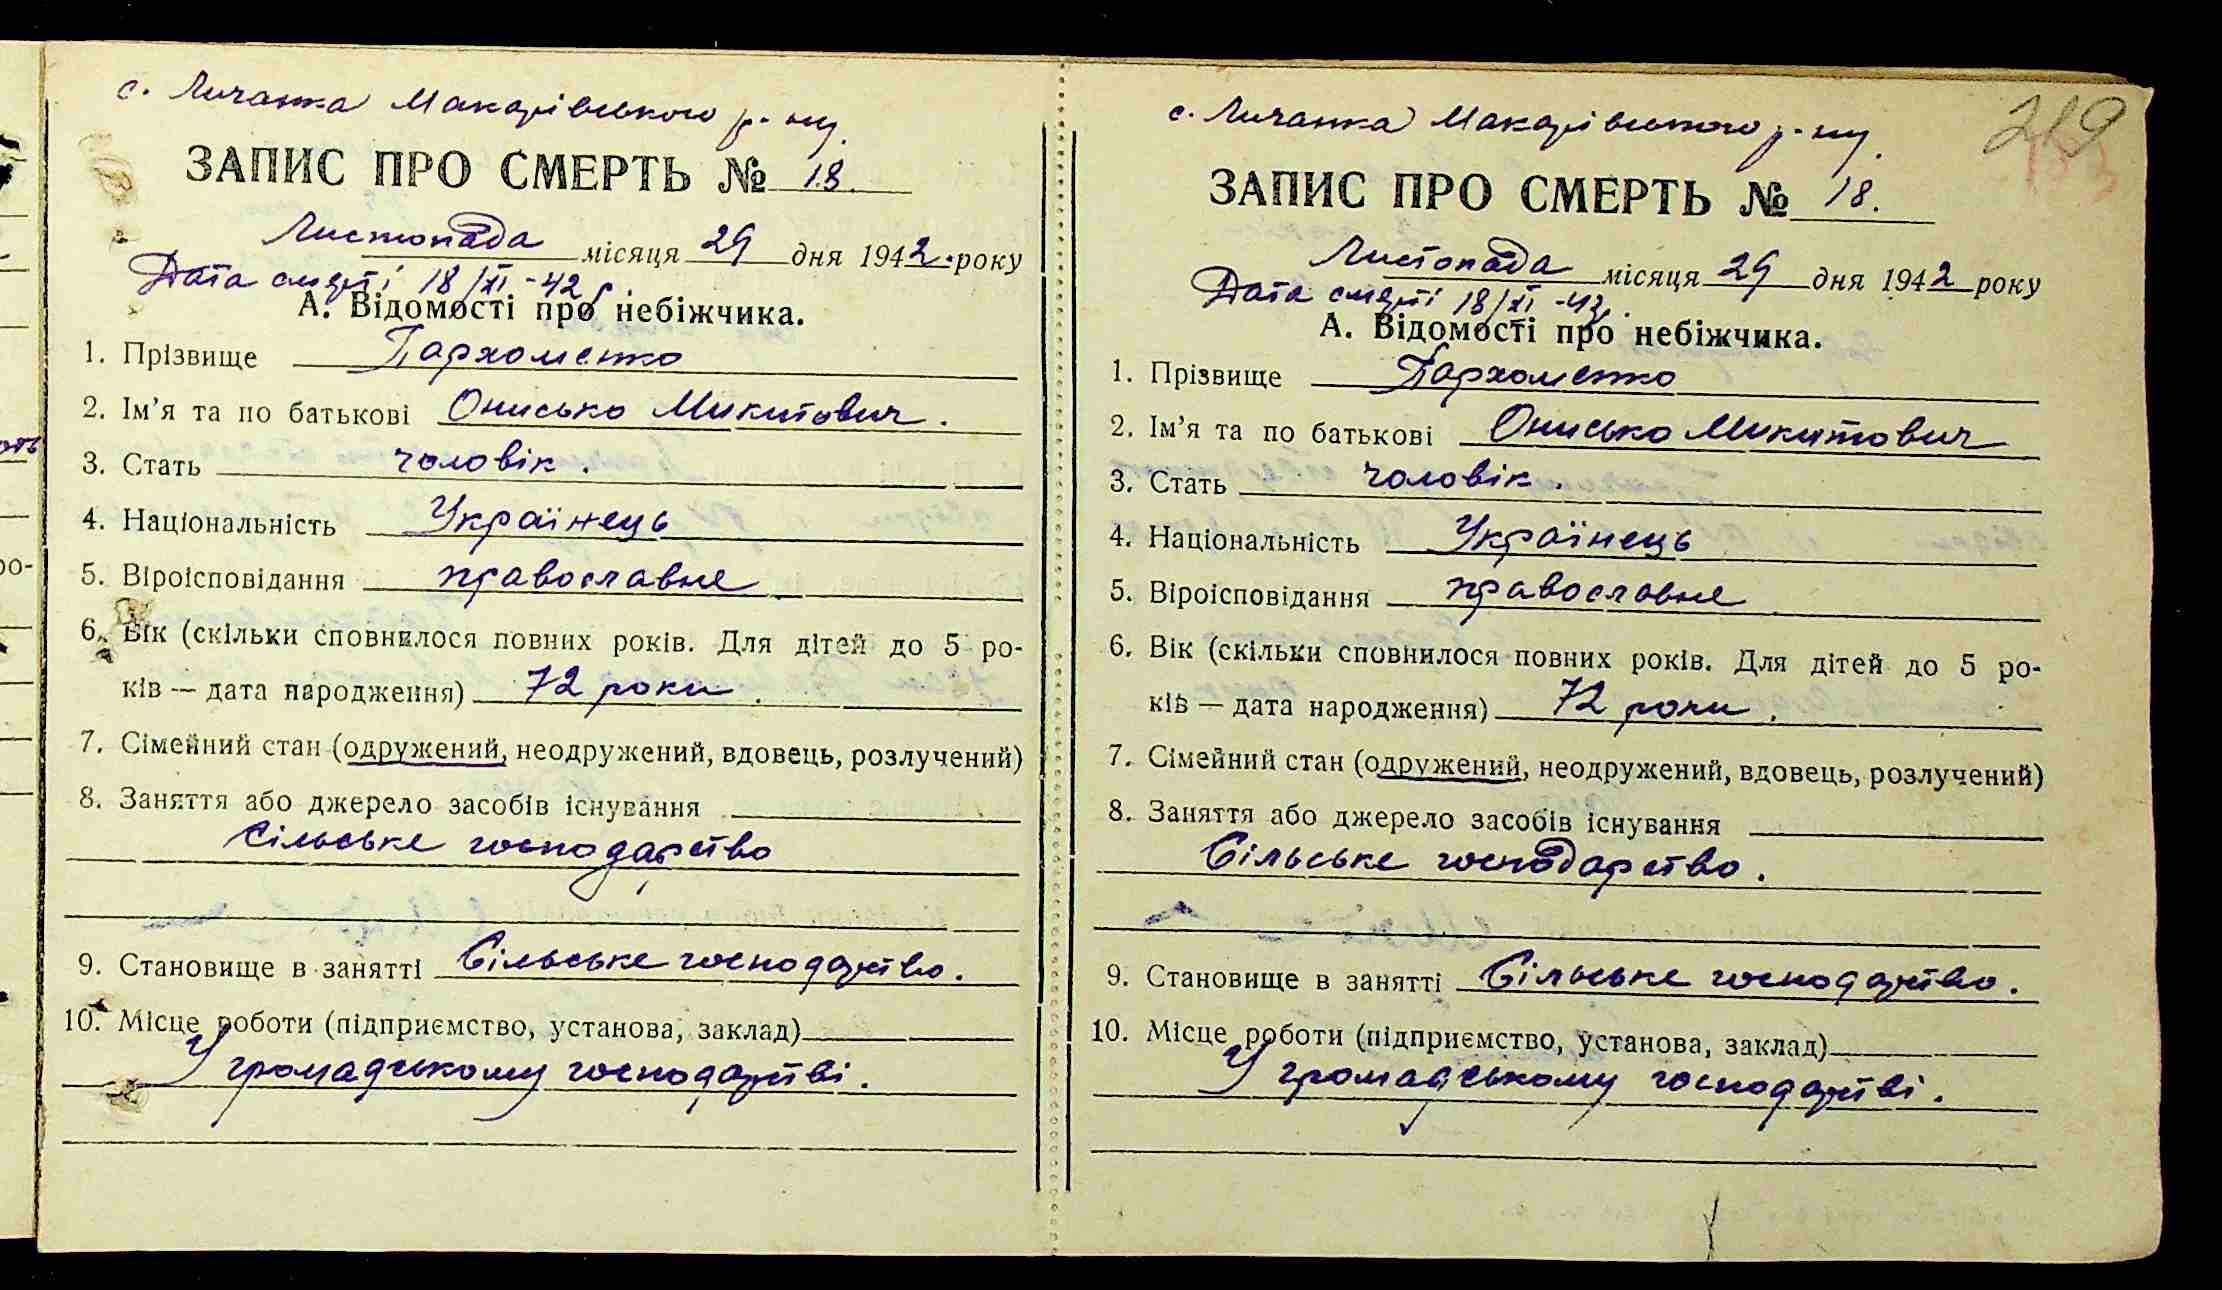 с. Личанка Макарівського р-ну.
ЗАПИС ПРО СМЕРТЬ № 18.
Листопада місяця 29 дня 1942 року
Дата смерті 18/XI -42 р.
А. Відомості про небіжчика.
1. Прізвище Пархоменко
2. Ім'я та по батькові Онисько Микитович.
3. Стать чоловік.
4. Національність Українець
5. Віроісповідання православне
6. Вік (скільки сповнилося повних років. Для дітей до 5 ро-
ків — дата народження) 72 роки.
7. Сімейний стан (одружений, неодружений, вдовець, розлучений)
8. Заняття або джерело засобів існування
Сільське господарство
9. Становище в занятті Сільське господарство.
10. Місце роботи (підприємство, установа, заклад)
У громадському господарстві.
с. Личанка Макарівського р-ну.
219
153
ЗАПИС ПРО СМЕРТЬ № 18.
Листопада місяця 29 дня 1942 року
Дата смерті 18/XI -42р.
А. Відомості про небіжчика.
1. Прізвище Пархоменко
2. Ім'я та по батькові Онисько Микитович
3. Стать чоловік.
4. Національність Українець
5. Віроісповідання православне
6. Вік (скільки сповнилося повних років. Для дітей до 5 ро-
ків — дата народження) 72 роки.
7. Сімейний стан (одружений, неодружений, вдовець, розлучений)
8. Заняття або джерело засобів існування
Сільське господарство.
9. Становище в занятті Сільське господарство.
10. Місце роботи (підприємство, установа, заклад)
У громадському господарстві.